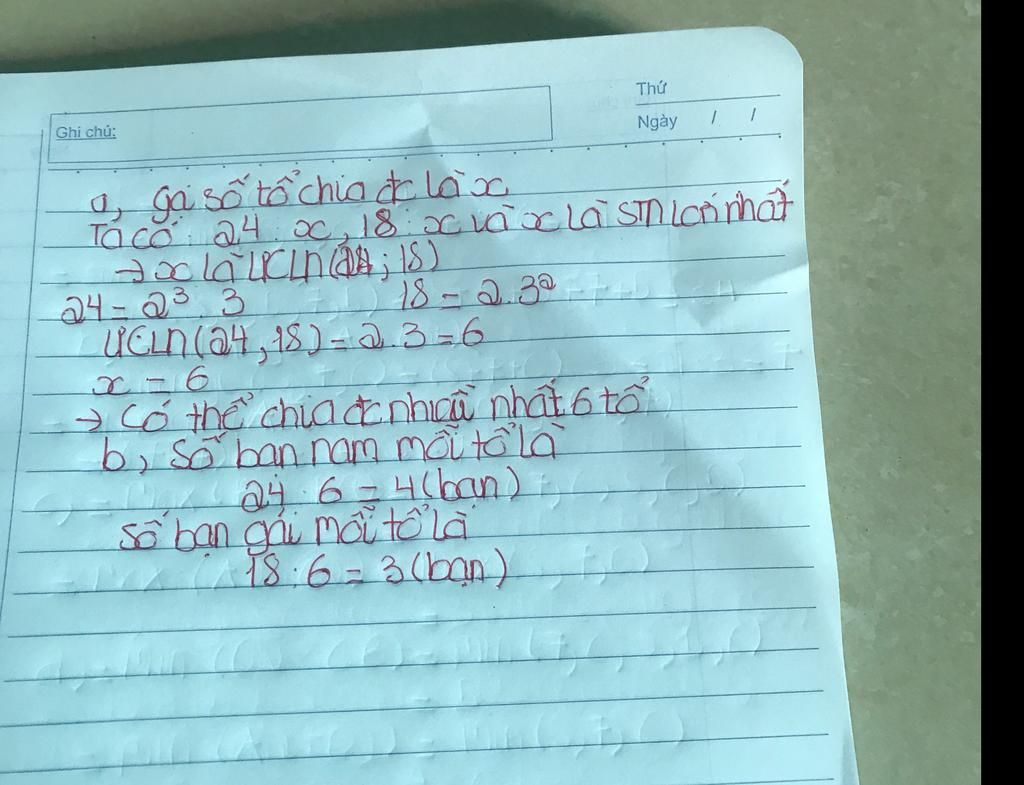 Thứ
Ghi chú:
Ngày / /
a, gọi số tổ chia đc là x
Ta có: 24 : x, 18 : x và x là STN lớn nhất
→ x là ƯCLN(24; 18)
24 = 2³. 3 18 = 2.3²
ƯCLN(24, 18) = 2.3 = 6
x = 6
→ Có thể chia đc nhiều nhất 6 tổ
b, Số bạn nam mỗi tổ là
24 : 6 = 4 (bạn)
Số bạn gái mỗi tổ là
18 : 6 = 3 (bạn)